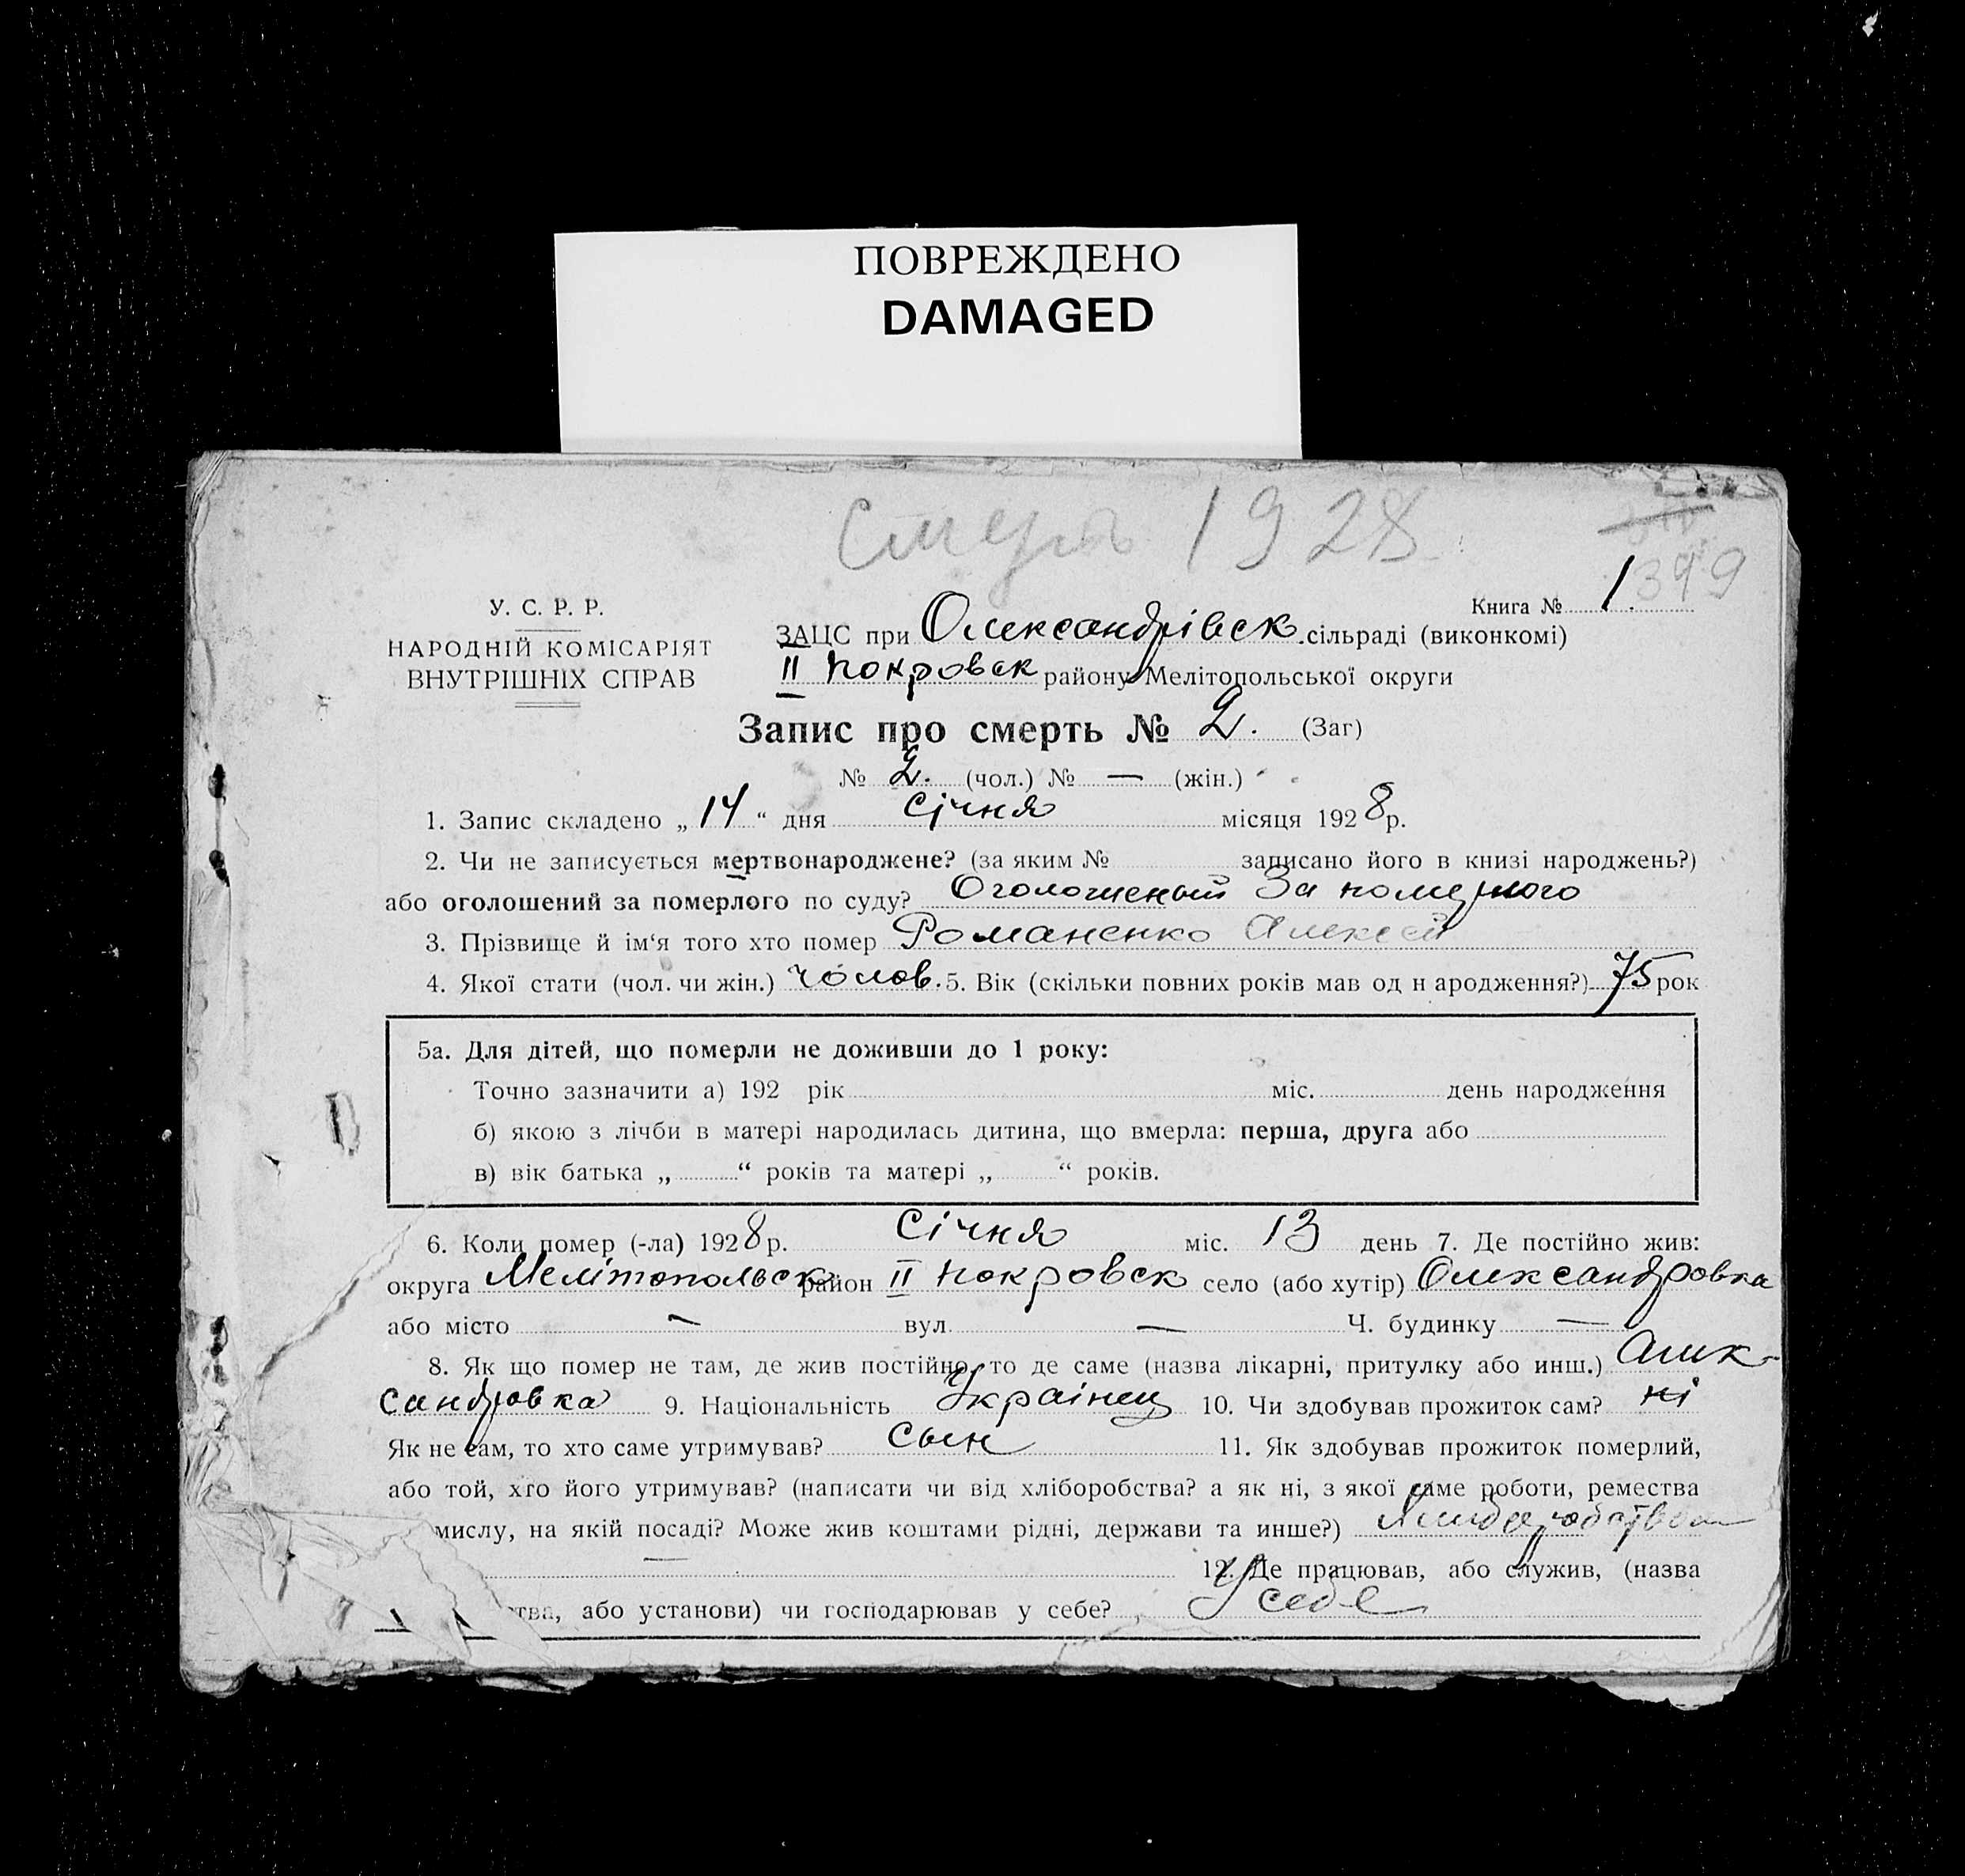 ПОВРЕЖДЕНО
DAMAGED
Смерть 1928
399
Книга № 1.
У. С. Р. Р.
НАРОДНІЙ КОМІСАРІЯТ
ВНУТРІШНІХ СПРАВ
ЗАЦС при Олександрівск. сільраді (виконкомі)
II Покровск району Мелітопольської округи
Запис про смерть № 2. (Заг)
№ 2. (чол.) № — (жін.)
1. Запис складено „ 14 “ дня Січня місяця 1928 р.
2. Чи не записується мертвонароджене? (за яким № записано його в книзі народжень?)
або оголошений за померлого по суду? Оголошеный За померлого
3. Прізвище й ім‘я того хто помер Романенко Алексей
4. Якої стати (чол. чи жін.) чолов. 5. Вік (скільки повних років мав од н ародження?) 75 рок
5а. Для дітей, що померли не доживши до 1 року:
Точно зазначити а) 192 рік міс. день народження
б) якою з лічби в матері народилась дитина, що вмерла: перша, друга або
в) вік батька „ “ років та матері „ “ років.
6. Коли помер (-ла) 1928 р. Січня міс. 13 день 7. Де постійно жив:
округа Мелітопольск район II Покровск село (або хутір) Олександровка
або місто — вул. — Ч. будинку —
8. Як що помер не там, де жив постійно, то де саме (назва лікарні, притулку або инш.) Алик-
сандровка 9. Національність Украінец 10. Чи здобував прожиток сам? ні
Як не сам, то хто саме утримував? Сын 11. Як здобував прожиток померлий,
або той, хто його утримував? (написати чи від хліборобства? а як ні, з якої саме роботи, ремества
мислу, на якій посаді? Може жив коштами рідні, держави та инше?)
— 12. Де працював, або служив, (назва
тва, або установи) чи господарював у себе? У себе